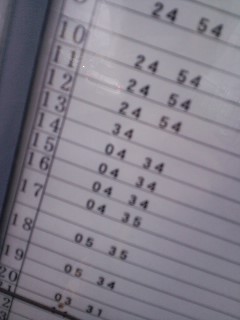 24 54
10 24 54
11 24 54
12 24 54
13 34
14 04 34
15 04 34
16 04 34
17 04 35
18 05 35
19 05 34
20 03 31